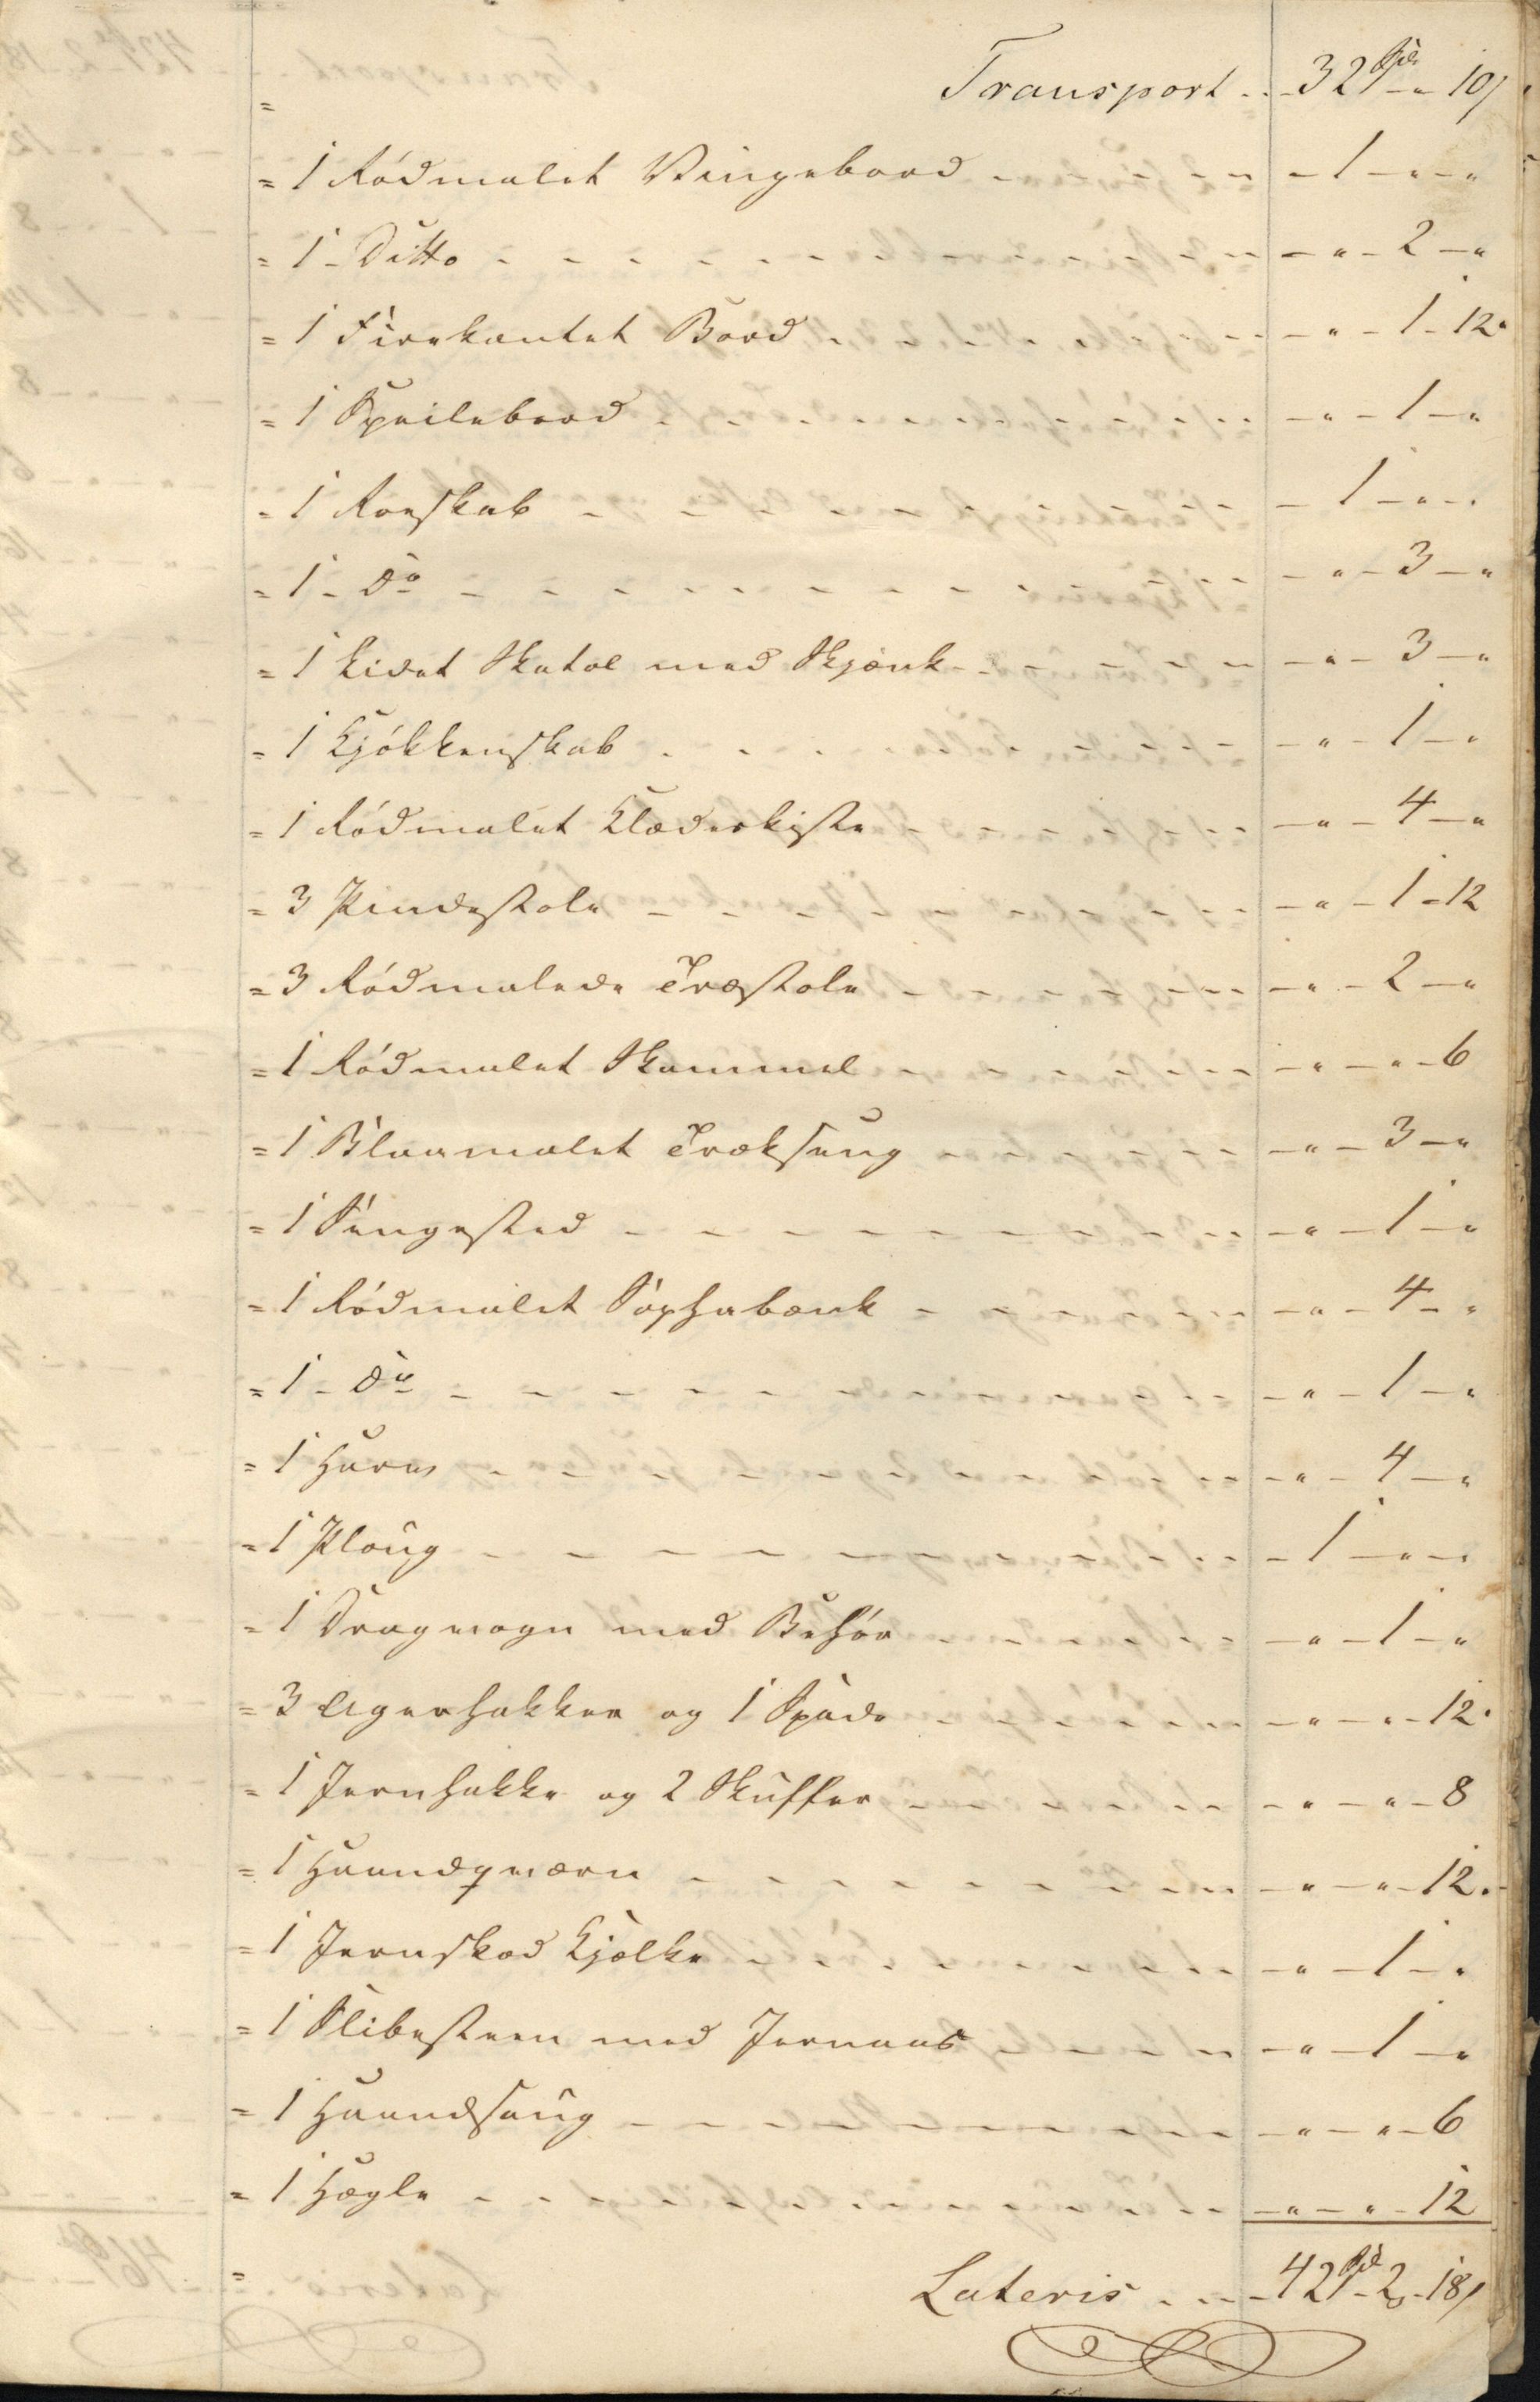 Transport . . - 32 Spd - " - 10/
= 1 Rødmalet Vingebord - - - 1 - " - "
= 1 - Ditto - - - - " - 2 - "
= 1 Firekantet Bord - - - " - 1 - 12
= 1 Speilebord - - - " - 1 - "
= 1 Roeskab - - - 1 - " - "
= 1 - Do - - - " - 3 - "
= 1 Lidet Skatol med Skjænk - - - " - 3 - "
= 1 Kjøkkenskab - - - " - 1 - "
= 1 Rødmalet Klædeskiste - " - 4 - "
= 3 Pindestole - - - " - 1 - 12
= 3 Rødmalede Træstole - - - " - 2 - "
= 1 Rødmalet Skammel - - - " - " - 6
= 1 Blaamalet Træksæng - " - 3 - "
= 1 Sengested - - - " - 1 - "
= 1 Rødmalet Sophabænk - - - " - 4 - "
= 1 - Do - - - " - 1 - "
= 1 Harv - - - " - 4 - "
= 1 Ploug - - - 1 - " - "
= 1 Dragvogn med Behør - - - " - 1 - "
= 3 Agerhakker og 1 Spade - - - " - " - 12
= 1 Jernhakke og 2 Skuffer - - - " - " - 8
= 1 Haandqværn - - - " - " - 12.
= 1 Jernskod Kjælke - - - " - 1 - "
= 1 Slibesteen med Jernaas - " - 1 - "
= 1 Haandsaug - - - " - " - 6
= 1 Hægle - - - " - " - 12
= Lateris . . . - 42 Spd - 2 - 18/